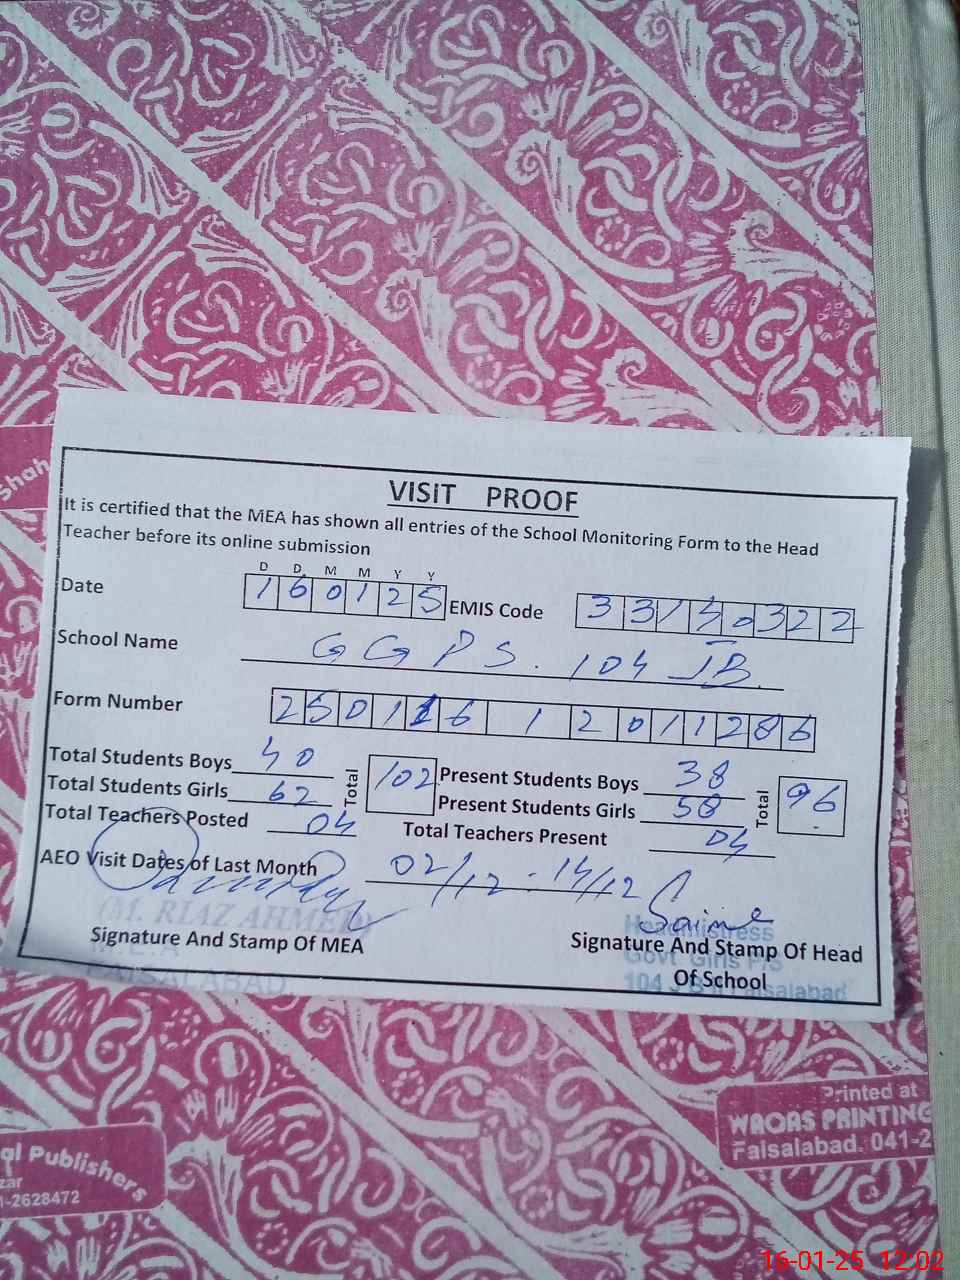 Shah
VISIT PROOF
It is certified that the MEA has shown all entries of the School Monitoring Form to the Head
Teacher before its online submission
D D M M Y Y
Date 160125 EMIS Code 33130322
School Name GGPS. 104 JB
Form Number 250116 1 2011286
Total Students Boys 40 Total 102 Present Students Boys 38 Total 96
Total Students Girls 62 Present Students Girls 58
Total Teachers Posted 04 Total Teachers Present 04
AEO Visit Dates of Last Month 02/12 - 14/12
(M. RIAZ AHMED)
M.E.A
FAISALABAD
Signature And Stamp Of MEA
Saima
Headmistress
Govt Girls P/S
104 J B Faisalabad
Signature And Stamp Of Head
Of School
Printed at
WAQAS PRINTING
Faisalabad. 041-2
al Publishers
zar
1-2628472
16-01-25 12:02